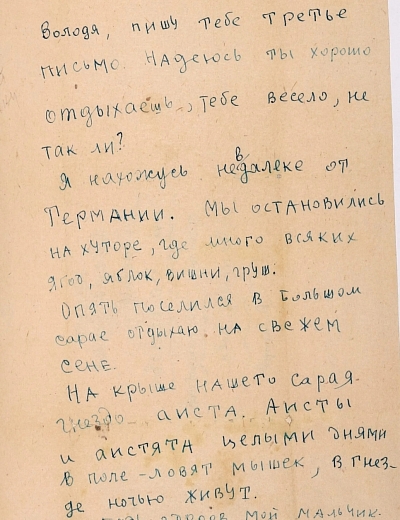 Володя, пишу тебе третье
письмо. Надеюсь ты хорошо
отдыхаешь, тебе весело, не
так ли?
Я нахожусь невдалеке от
Германии. Мы остановились
на хуторе, где много всяких
ягод, яблок, вишни, груш.
Опять поселился в большом
сарае отдыхаю на свежем
сене.
На крыше нашего сарая
гнездо аиста. Аисты
и аистята целыми днями
в поле - ловят мышек, в гнез-
де ночью живут.
здоров мой мальчик.